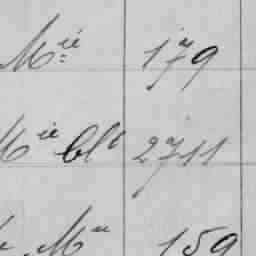 Mie 179
Mie blt 2711
Me 159